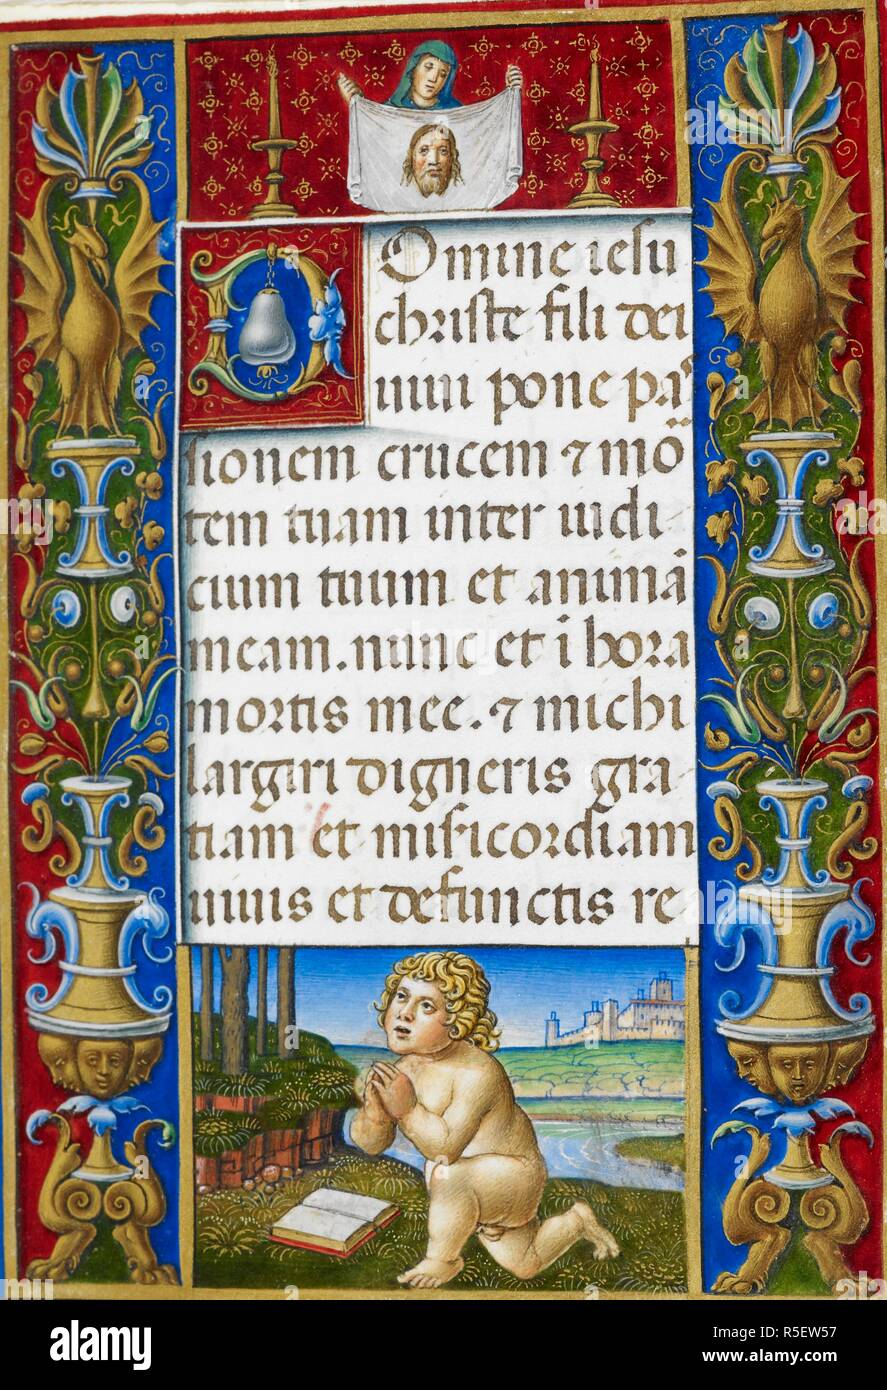 Domine iesu
christe fili dei
uiui pone pas
sionem crucem ⁊ mō
tem tuam inter iudi
cium tuum et animā
meam. nunc et ī hora
mortis mee. ⁊ michi
largiri digneris gra
tiam et misericordiam
uiuis et defunctis re
alamy
Image ID: R5EW57
www.alamy.com